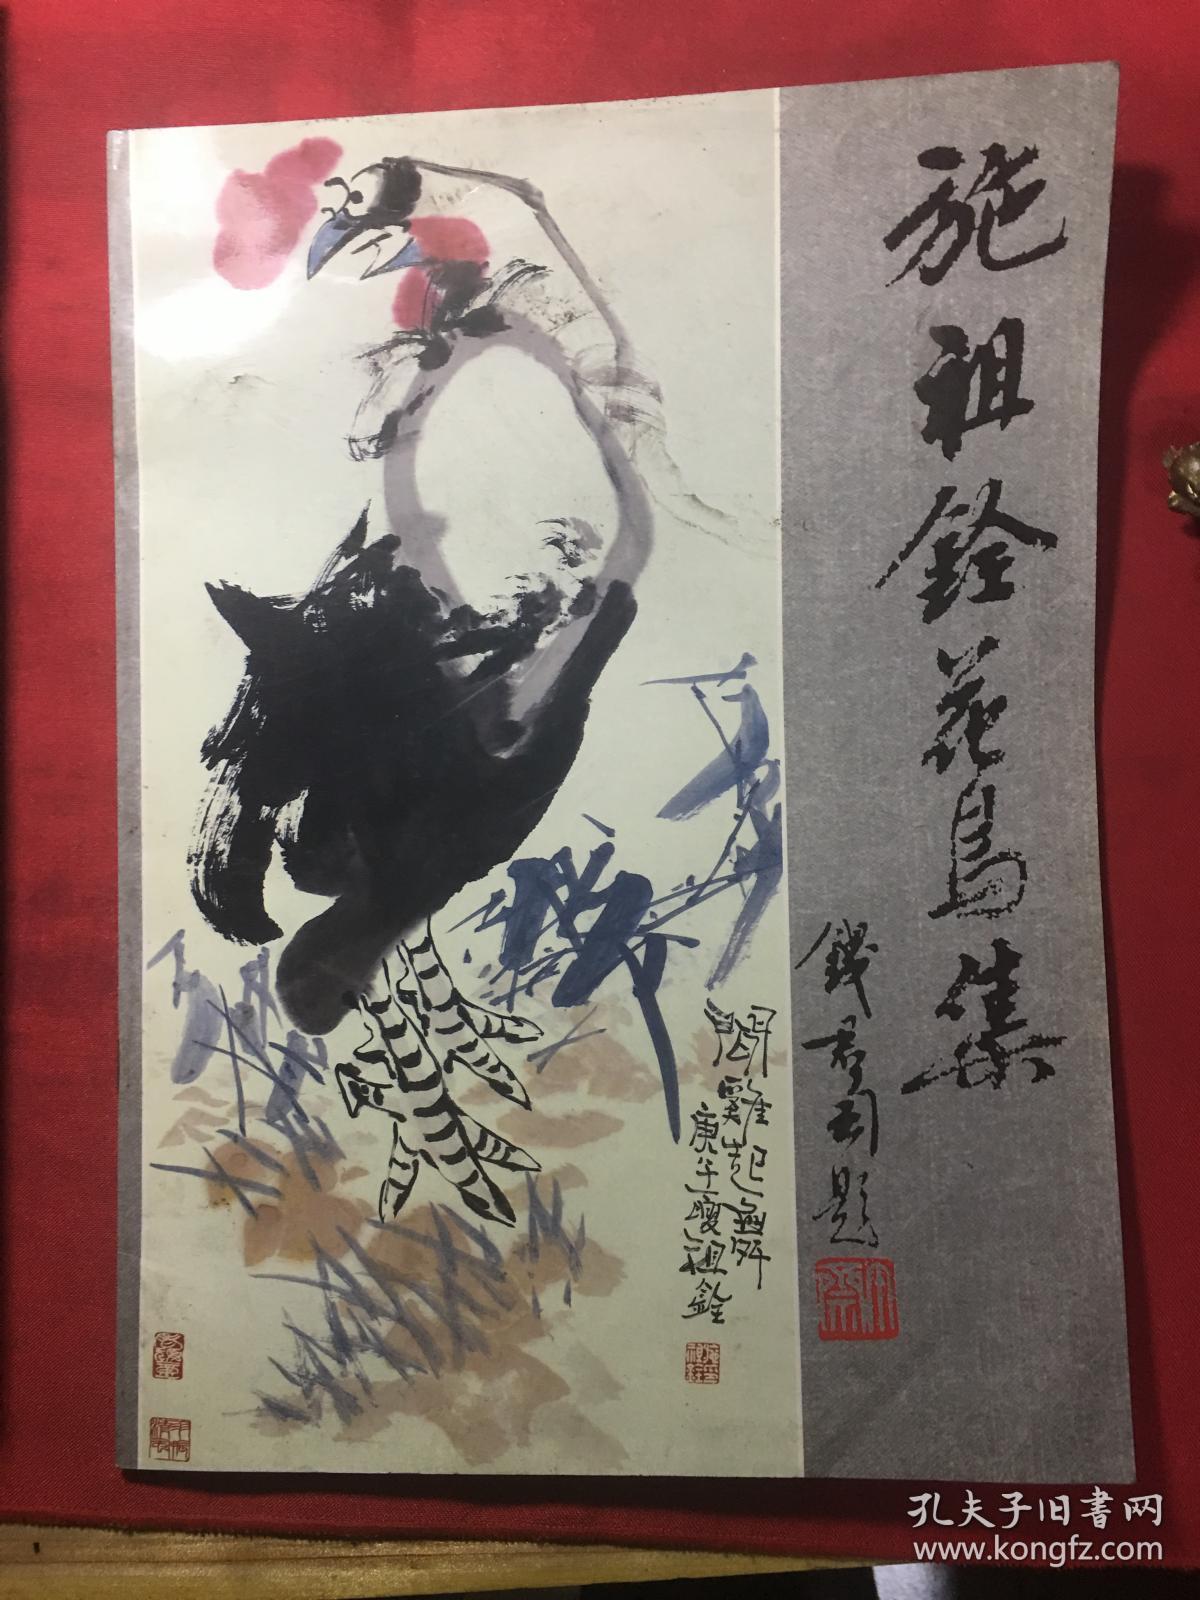 施祖銓花鳥集
錢君匋題
聞雞起舞
庚午夏祖銓
孔夫子旧书网
www.kongfz.com